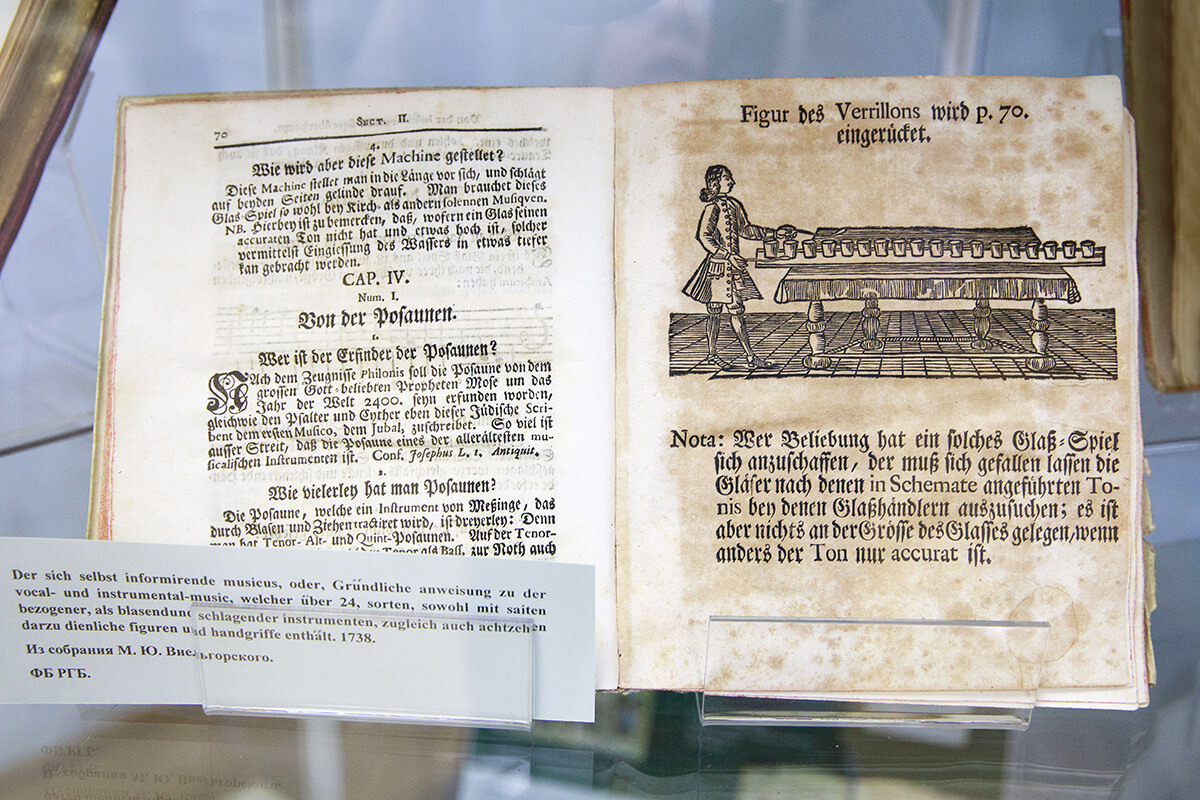 70
SECT. II.
4.
Wie wird aber diese Machine gestellet?
Diese Machine stellet man in die Länge vor sich, und schlägt
auf beyden Seiten gelinde drauf. Man brauchet dieses
Glas-Spiel so wohl bey Kirch- als andern solennen Musiqven.
NB. Hierbey ist zu bemercken, daß, wofern ein Glas seinen
accuraten Ton nicht hat und etwas hoch ist, solcher
vermittelst Eingiessung des Wassers in etwas tiefer
kan gebracht werden.
CAP. IV.
Num. I.
Von der Posaunen.
1.
Wer ist der Erfinder der Posaunen?
NAch dem Zeugnisse Philonis soll die Posaune von dem
grossen Gott-beliebten Propheten Mose um das
Jahr der Welt 2400. seyn erfunden worden,
gleichwie den Psalter und Cyther eben dieser Jüdische Scri-
bent dem ersten Musico, dem Jubal, zuschreibet. So viel ist
ausser Streit, daß die Posaune eines der allerältesten mu-
sicalischen Instrumenten ist. Conf. Josephus L. 1. Antiquit.
2.
Wie vielerley hat man Posaunen?
Die Posaune, welche ein Instrument von Meßinge, das
durch Blasen und Ziehen tractiret wird, ist dreyerley: Denn
man hat Tenor- Alt- und Quint-Posaunen. Auf der Tenor-
Tenor als Baß, zur Noth auch
Figur des Verrillons wird p. 70.
eingerücket.
Nota: Wer Beliebung hat ein solches Glaß-Spiel
sich anzuschaffen, der muß sich gefallen lassen die
Gläser nach denen in Schemate angeführten To-
nis bey denen Glaßhändlern auszusuchen; es ist
aber nichts an der Grösse des Glasses gelegen, wenn
anders der Ton nur accurat ist.
Der sich selbst informirende musicus, oder, Gründliche anweisung zu der
vocal- und instrumental-music, welcher über 24, sorten, sowohl mit saiten
bezogener, als blasendund schlagender instrumenten, zugleich auch achtzehen
darzu dienliche figuren und handgriffe enthält. 1738.
Из собрания М. Ю. Виельгорского.
ФБ РГБ.